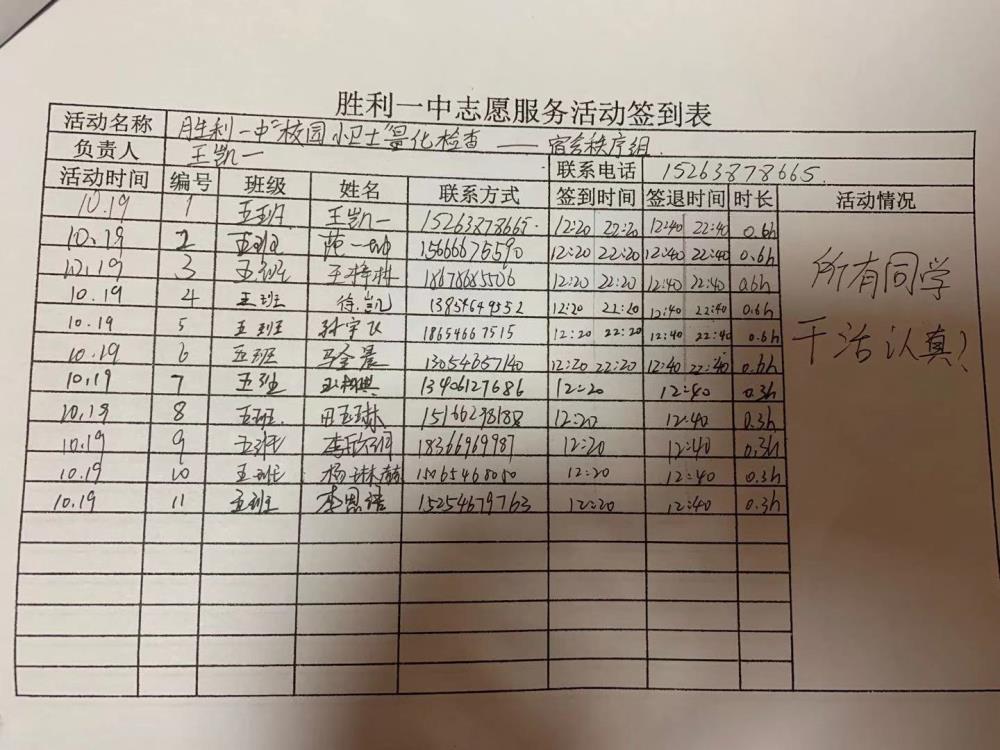 胜利一中志愿服务活动签到表
活动名称 胜利一中"校园小卫士"量化检查——宿舍秩序组
负责人 王凯一 联系电话 15263878665
活动时间 编号 班级 姓名 联系方式 签到时间 签退时间 时长 活动情况
10.19 1 五班 王凯一 15263878665 12:20 22:20 12:40 22:40 0.6h
10.19 2 五班 范一 15666675590 12:20 22:20 12:40 22:40 0.6h
10.19 3 五班 王梓 18678685506 12:20 22:20 12:40 22:40 0.6h
10.19 4 五班 徐凯 13854649352 12:20 22:20 12:40 22:40 0.6h
10.19 5 五班 孙宇飞 18654667515 12:20 22:20 12:40 22:40 0.6h
10.19 6 五班 马金晨 13054657140 12:20 22:20 12:40 22:40 0.6h
10.19 7 五班 13406127686 12:20 12:40 0.3h
10.19 8 五班 田玉琳 15166298188 12:20 12:40 0.3h
10.19 9 五班 李 18366969987 12:20 12:40 0.3h
10.19 10 五班 杨琳赫 15065468080 12:20 12:40 0.3h
10.19 11 五班 李恩语 15254679763 12:20 12:40 0.3h
所有同学
干活认真！